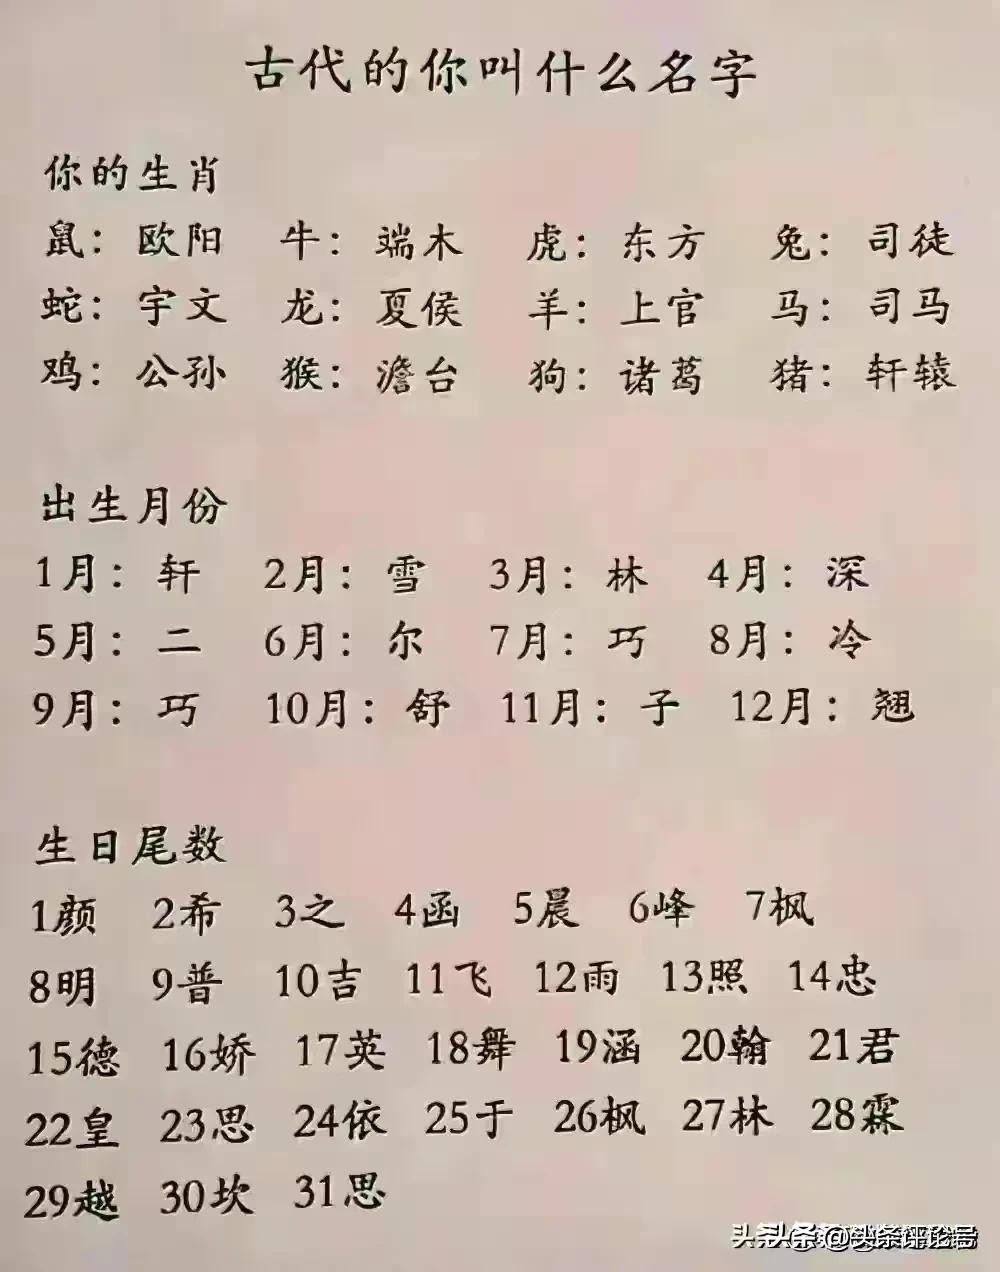 古代的你叫什么名字
你的生肖
鼠：欧阳 牛：端木 虎：东方 兔：司徒
蛇：宇文 龙：夏侯 羊：上官 马：司马
鸡：公孙 猴：澹台 狗：诸葛 猪：轩辕
出生月份
1月：轩 2月：雪 3月：林 4月：深
5月：二 6月：尔 7月：巧 8月：冷
9月：巧 10月：舒 11月：子 12月：翘
生日尾数
1颜 2希 3之 4函 5晨 6峰 7枫
8明 9普 10吉 11飞 12雨 13照 14忠
15德 16娇 17英 18舞 19涵 20翰 21君
22皇 23思 24依 25于 26枫 27林 28霖
29越 30坎 31思
头条 @头条评论号